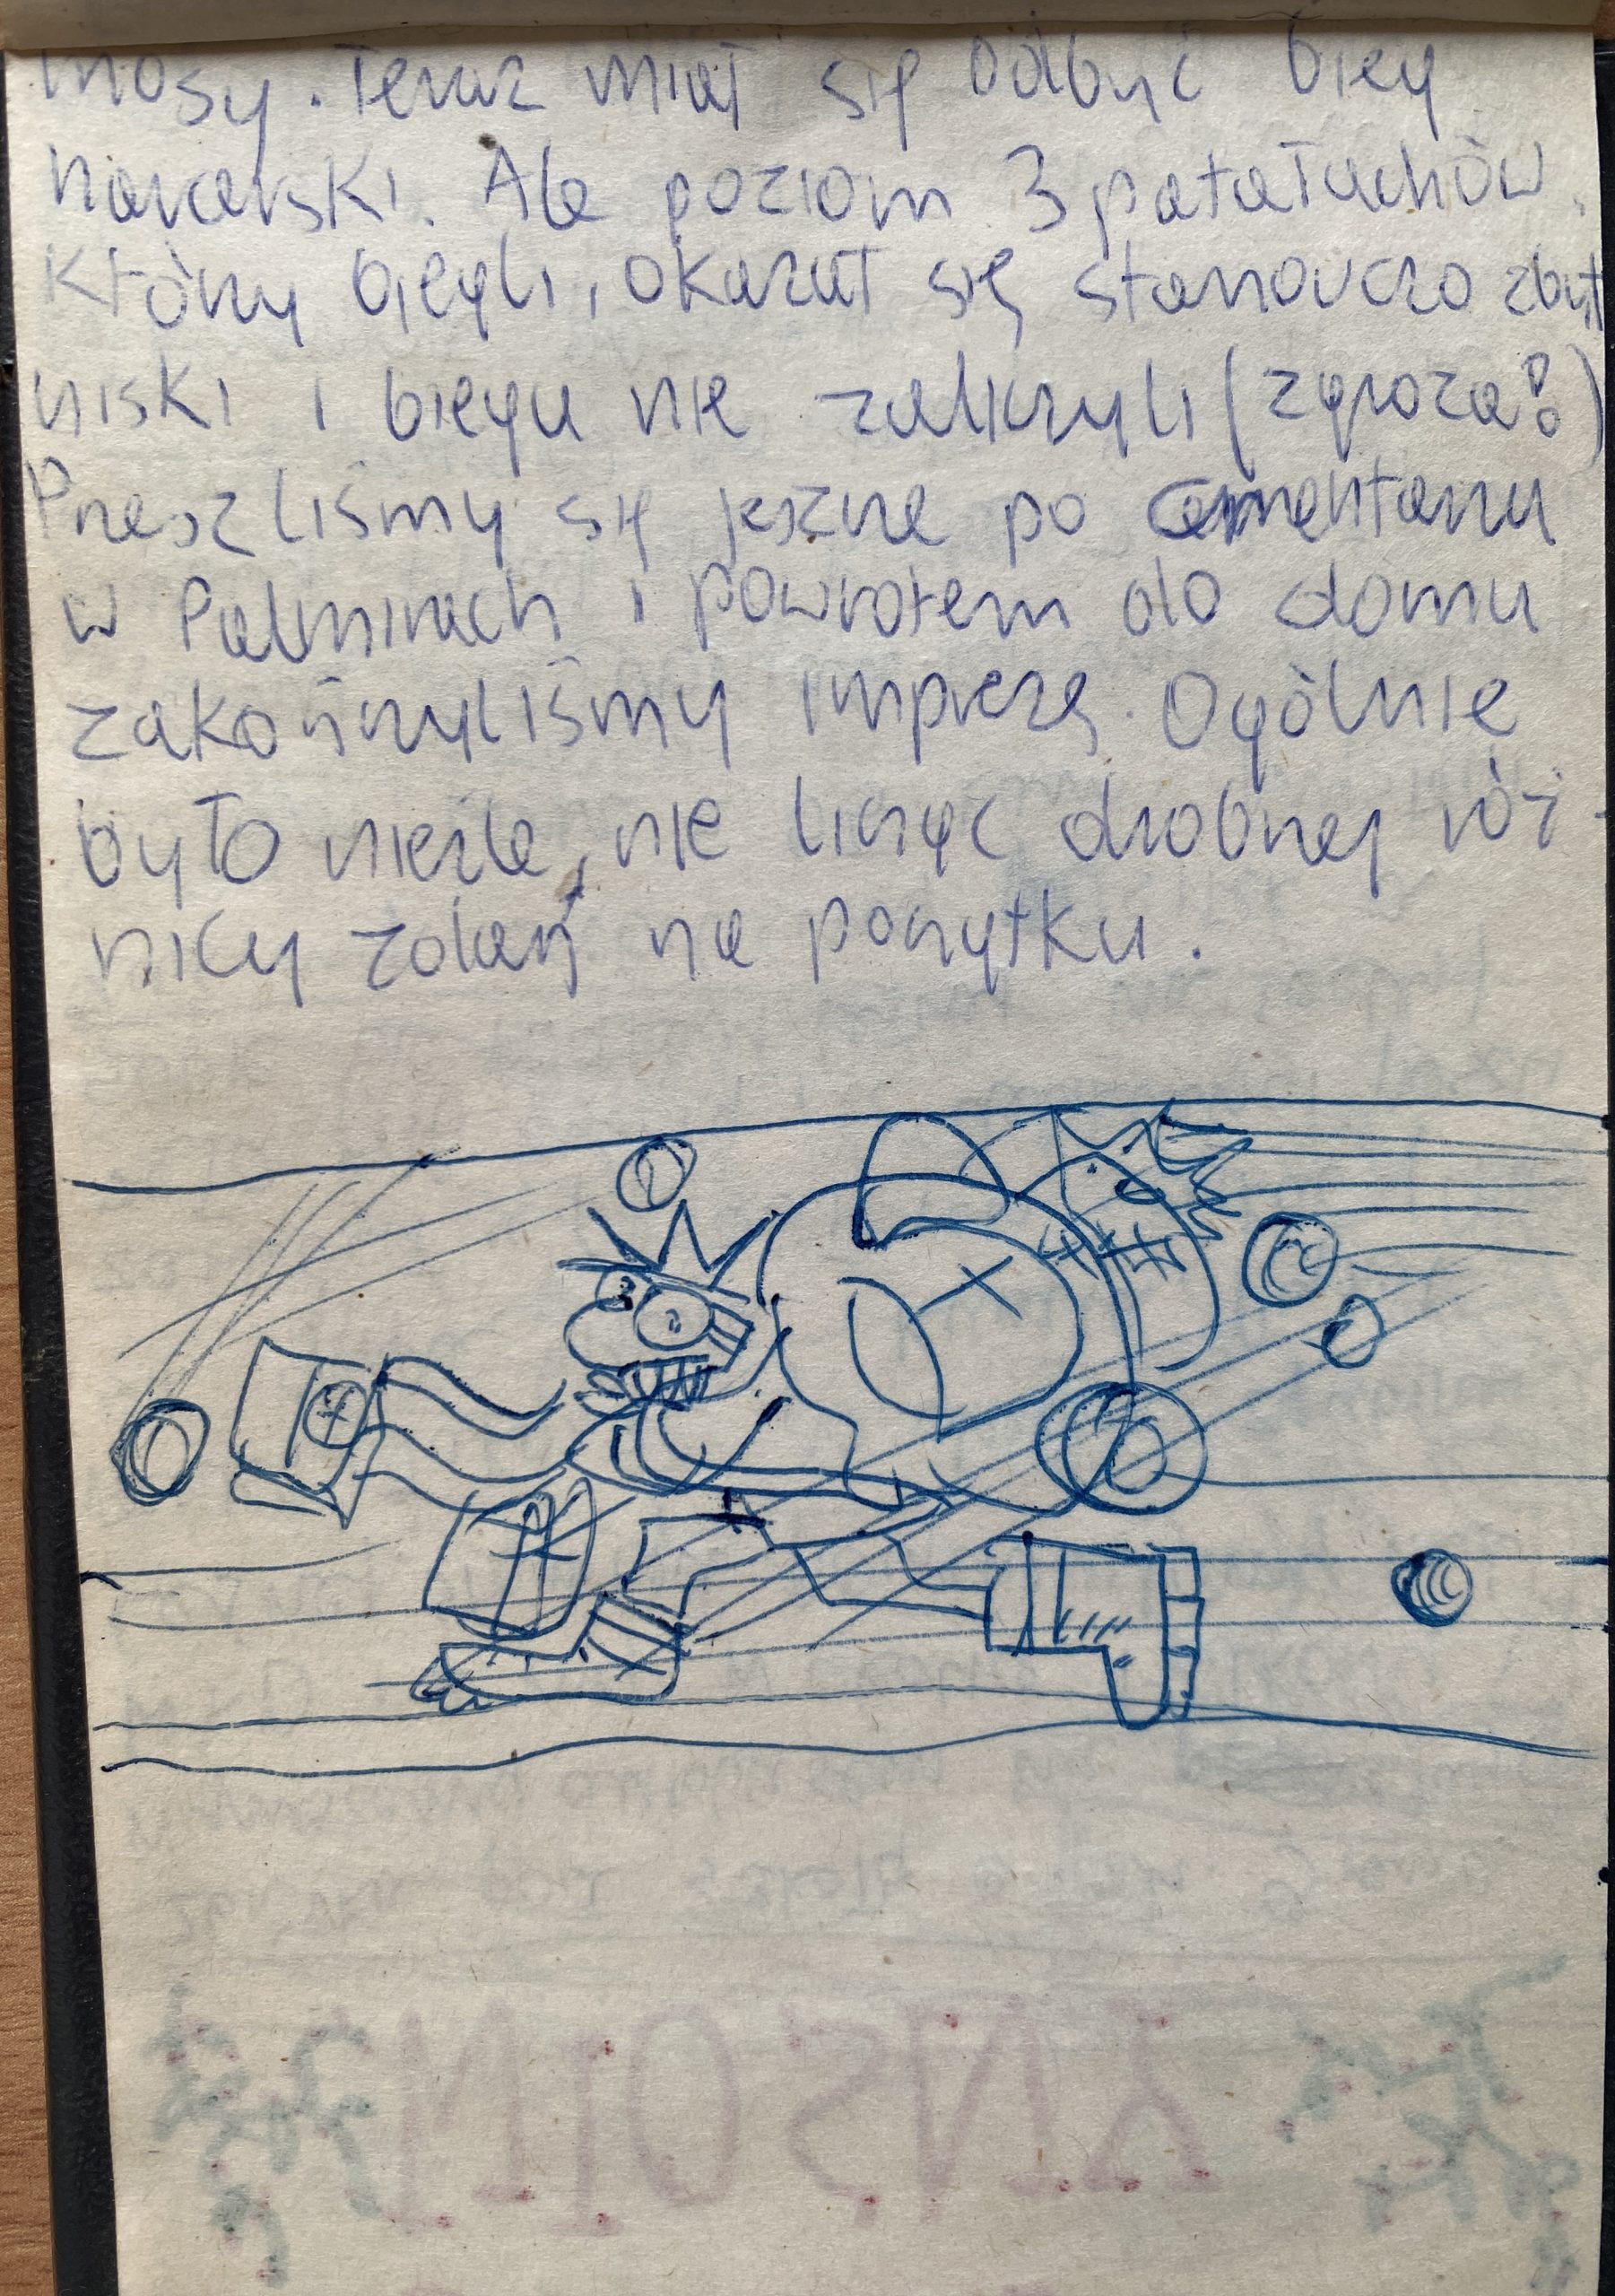 mosy. Teraz miał się odbyć bieg
harcerski. Ale poziom 3 patałachów,
którzy biegli, okazał się stanowczo zbyt
niski i biegu nie zaliczyli (zgroza!)
Przeszliśmy się jeszcze po cmentarzu
w Palmirach i powrotem do domu
zakończyliśmy imprezę. Ogólnie
było nieźle, nie licząc drobnej róż-
nicy zdań na początku.